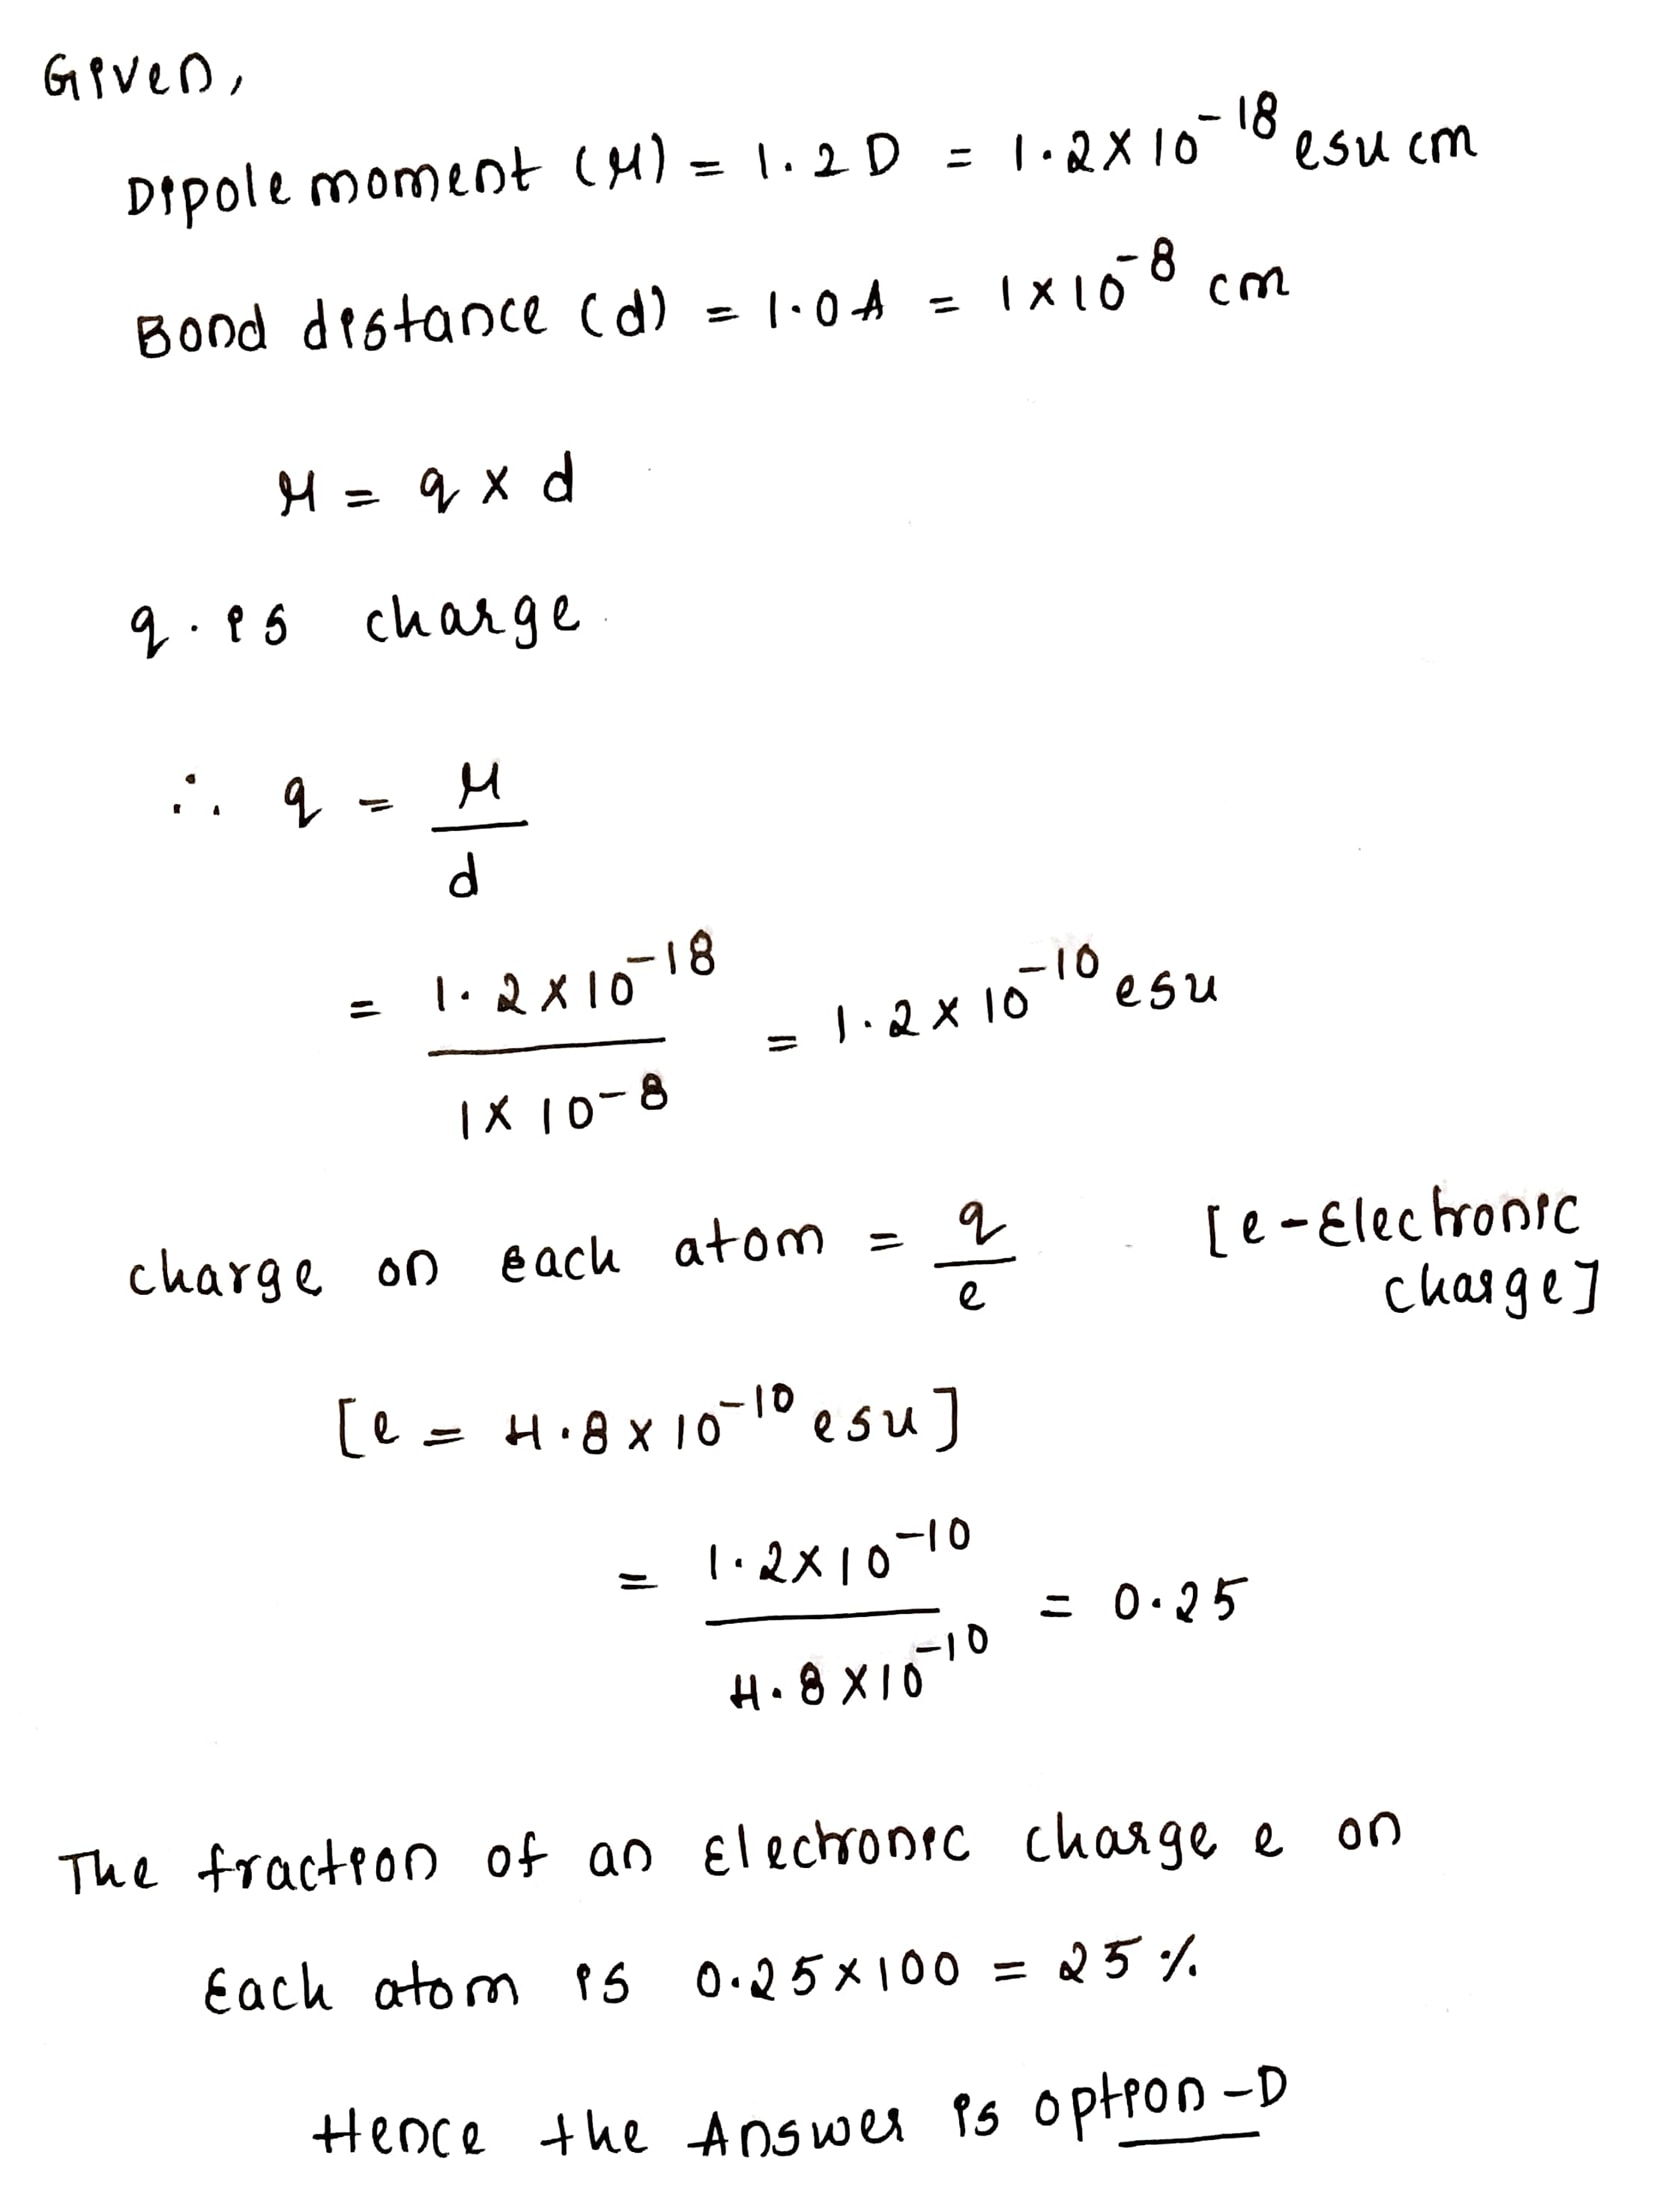 Given,
Dipole moment (μ) = 1.2 D = 1.2×10⁻¹⁸ esu cm
Bond distance (d) = 1.0 A = 1×10⁻⁸ cm
μ = q × d
q. is charge.
∴ q = μ
d
= 1.2×10⁻¹⁸ = 1.2×10⁻¹⁰ esu
1×10⁻⁸
charge on each atom = q [e-Electronic
e charge]
[e = 4.8×10⁻¹⁰ esu]
= 1.2×10⁻¹⁰ = 0.25
4.8×10⁻¹⁰
The fraction of an Electronic charge e on
Each atom is 0.25×100 = 25 %.
Hence the Answer is option-D